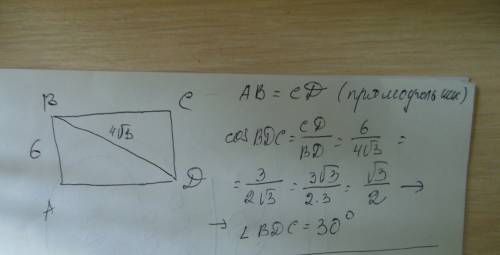 B C
4√3
6
A D
AB = CD (прямоугольник)
cos BDC = CD/BD = 6/4√3 =
= 3/2√3 = 3√3/2·3 = √3/2 →
→ ∠BDC = 30°